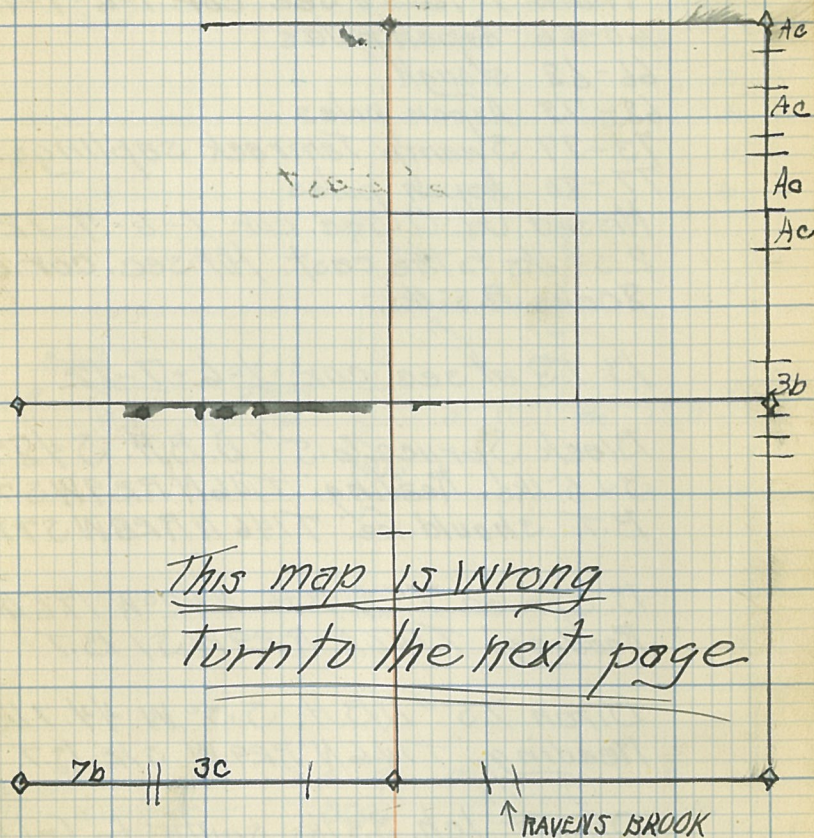 Ac
Ac
Ac
Ac
3b
This map is wrong
Turn to the next page
7b 3c
↑ RAVENS BROOK